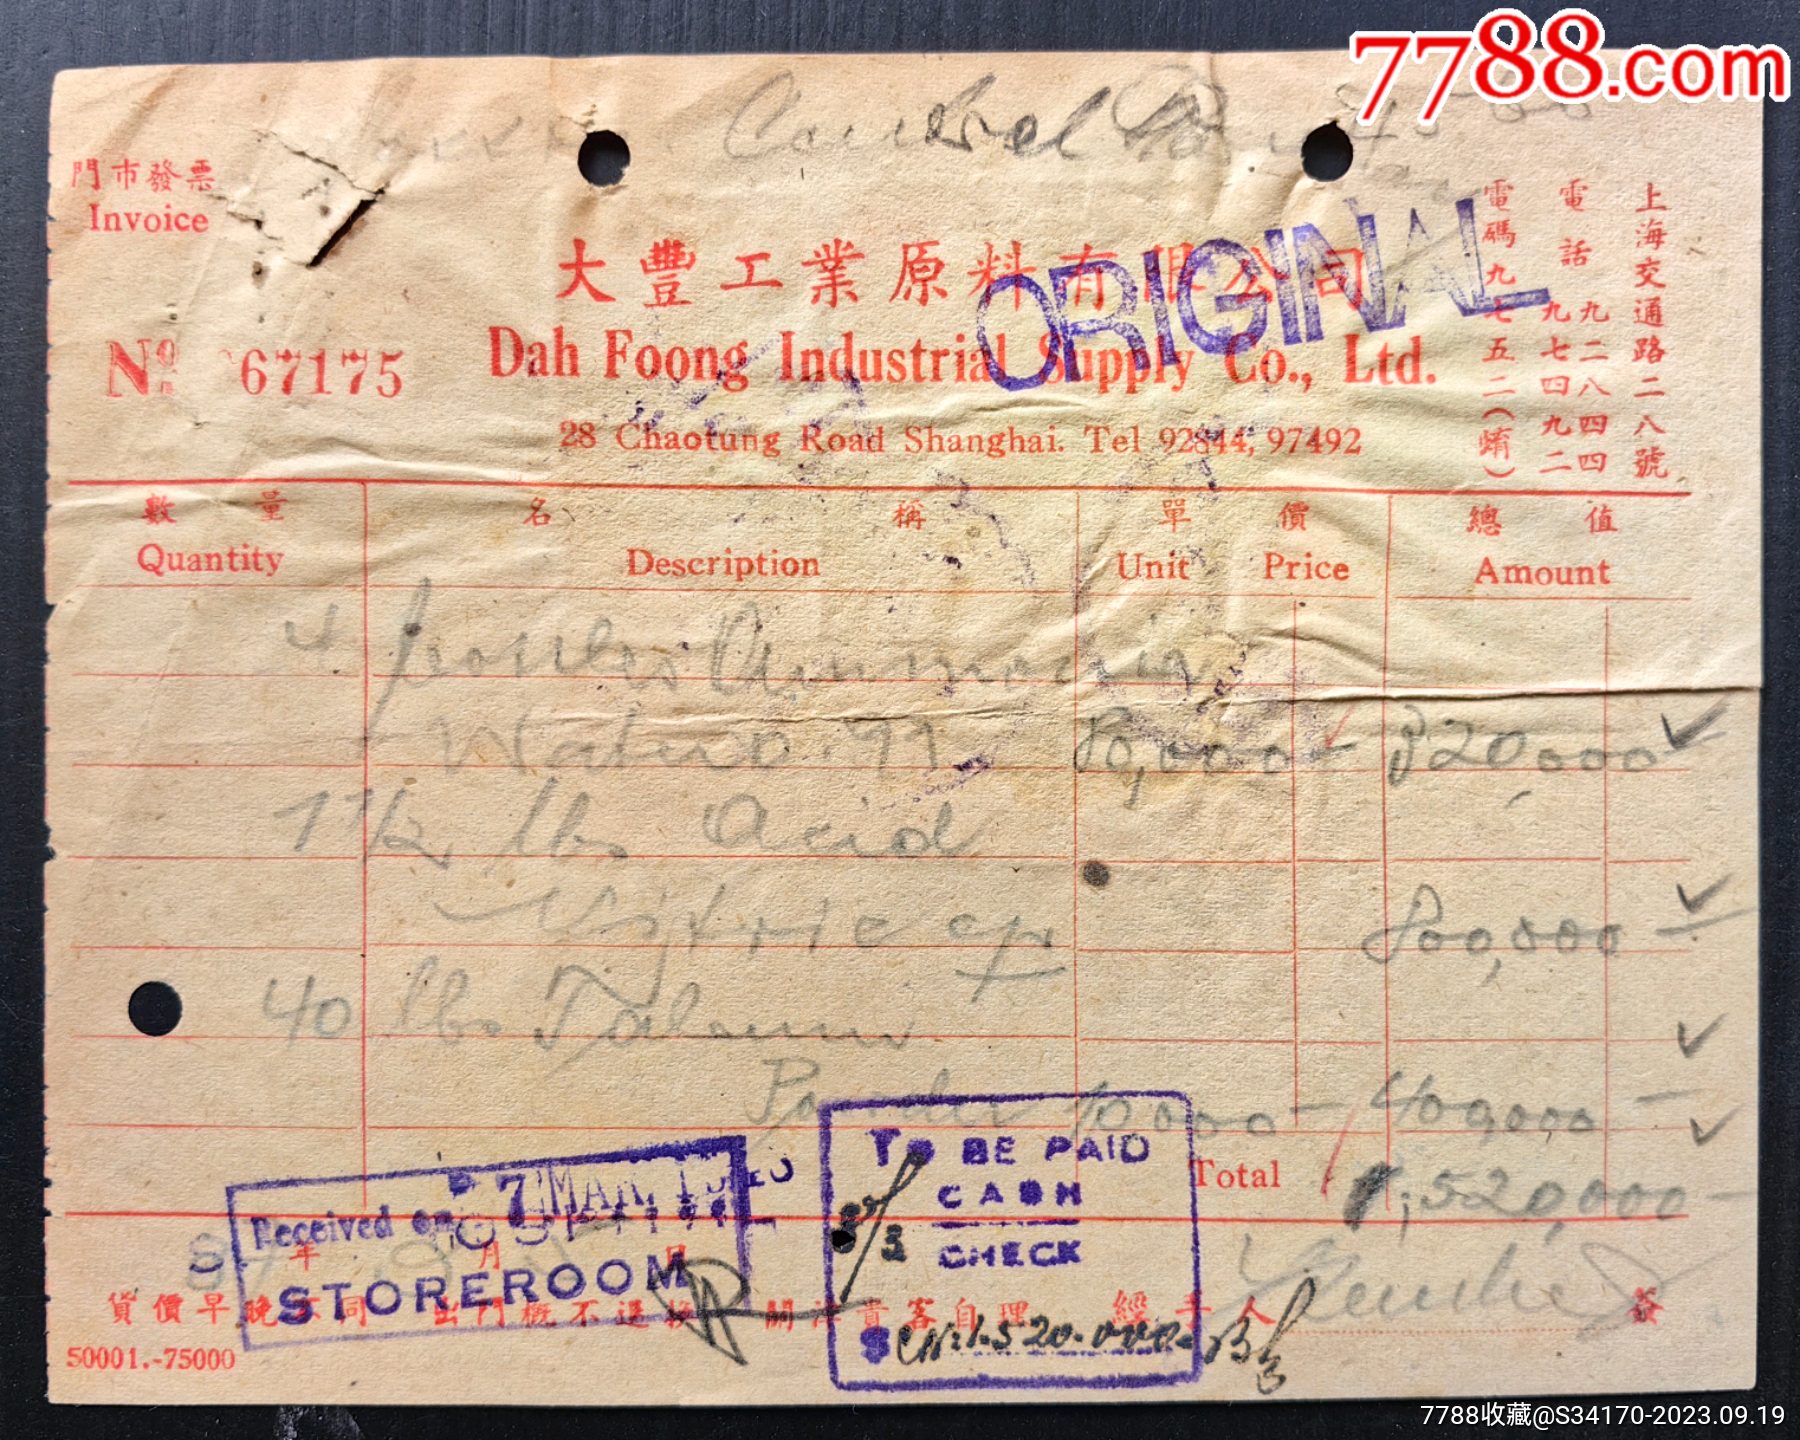 7788.com
門市發票
Invoice
大豐工業原料有限公司
Dah Foong Industrial Supply Co., Ltd.
28 Chaotung Road Shanghai. Tel 92844, 97492
ORIGINAL
上海交通路二八號
電話 九二八四四
九七四九二
電碼九七五二(蜟)
No. 67175
數量 名稱 單價 總值
Quantity Description Unit Price Amount
4 bottles Ammonia
Water 80,000 – 320,000
1 1/2 lbs Acid
Nitric cp 800,000 –
40 lbs Talcum
Powder 10,000 – 400,000 –
Total 1,520,000 –
Received on 7 MAR
STOREROOM
TO BE PAID
CASH
CHECK
8/3
$ CN: 1.520.000.-
年 月 日
貨價早晚不同 出門概不退換 關津貴客自理 經手人 簽
50001.-75000
7788收藏@S34170-2023.09.19